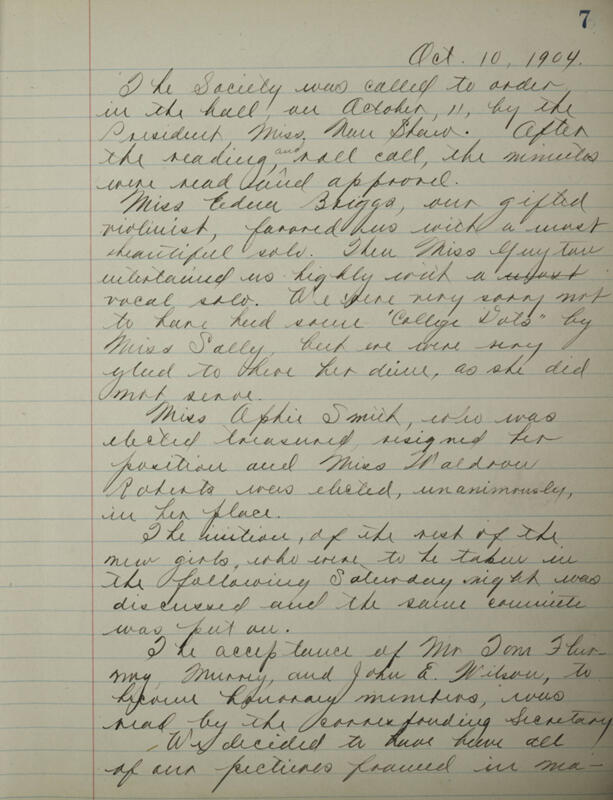 7
Oct. 10, 1904.
The Society was called to order,
in the hall, on October, 11, by the
President, Miss, Nan Shaw. After
the reading, and roll call, the minutes
were read and approved.
Miss Edna Briggs, our gifted
violinist, favored us with a most
beautiful solo. Then Miss Guyton
entertained us highly with a most
vocal solo. We were very sorry not
to have had some "College Dots" by
Miss Sally, but we were very
glad to have her, as she did
not serve.
Miss Aphie Smith, who was
elected treasured, resigned her
position and Miss Waldron
Roberts was elected, unanimously,
in her place.
The, of the rest of the
new girls, who were to be taken in
the following Saturday night was
discussed and the same
was put on.
The acceptance of Mr Tom
Murry, and John E. Wilson, to
become honorary members, was
read by the corresponding Secretary
We decided to have have all
of our pectures framed in ma-